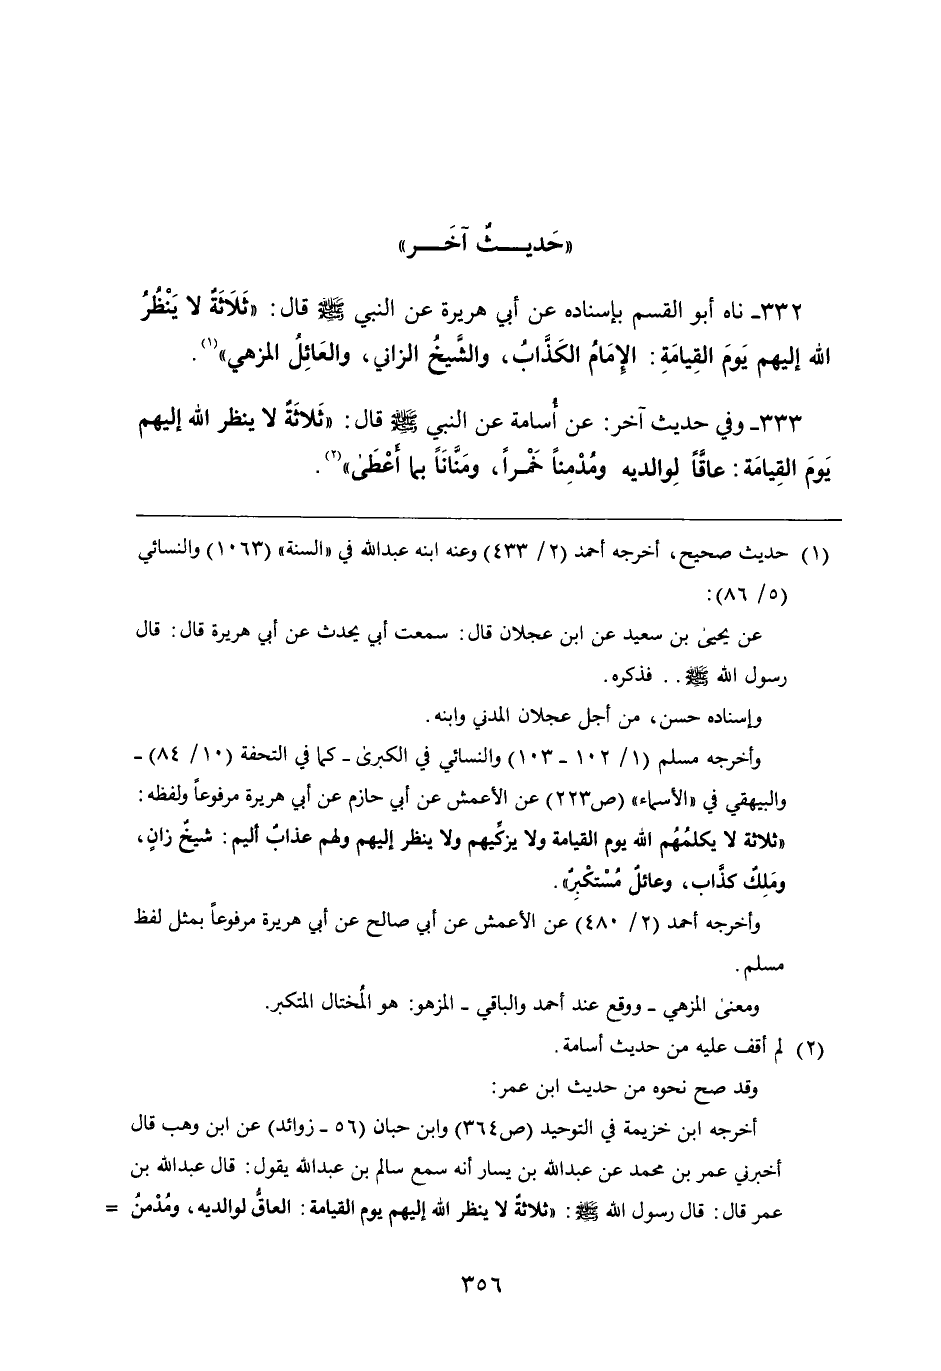 «حَديـــثٌ آخَـــر»
٣٣٢ـ ناه أبو القسم بإسناده عن أبي هريرة عن النبي ﷺ قال: «ثَلَاثَةٌ لا يَنْظُرُ
الله إليهم يَومَ القِيامَةِ: الإِمَامُ الكَذَّابُ، والشَّيخُ الزاني، والعَائِلُ المزهي»(١).
٣٣٣ـ وفي حديث آخر: عن أُسامة عن النبي ﷺ قال: «ثَلاثَةٌ لا ينظر الله إليهم
يَومَ القِيامَة: عاقَّاً لِوالديه ومُدْمِناً خَمْراً، ومَنَّانَاً بما أَعْطَىٰ»(٢).
(١) حديث صحيح، أخرجه أحمد (٢/ ٤٣٣) وعنه ابنه عبدالله في «السنة» (١٠٦٣) والنسائي
(٥/ ٨٦):
عن يحيىٰ بن سعيد عن ابن عجلان قال: سمعت أبي يحدث عن أبي هريرة قال: قال
رسول الله ﷺ.. فذكره.
وإسناده حسن، من أجل عجلان المدني وابنه.
وأخرجه مسلم (١/ ١٠٢ ـ ١٠٣) والنسائي في الكبرىٰ ـ كما في التحفة (١٠/ ٨٤) ـ
والبيهقي في «الأسماء» (ص٢٢٣) عن الأعمش عن أبي حازم عن أبي هريرة مرفوعاً ولفظه:
«ثلاثة لا يكلمُهُم الله يوم القيامة ولا يزكِّيهم ولا ينظر إليهم ولهم عذابٌ أليم: شيخٌ زانٍ،
ومَلِكٌ كذَّاب، وعائلٌ مُسْتكْبِرٌ».
وأخرجه أحمد (٢/ ٤٨٠) عن الأعمش عن أبي صالح عن أبي هريرة مرفوعاً بمثل لفظ
مسلم.
ومعنىٰ المزهي ـ ووقع عند أحمد والباقي ـ المزهو: هو المُختال المتكبر.
(٢) لم أقف عليه من حديث أسامة.
وقد صح نحوه من حديث ابن عمر:
أخرجه ابن خزيمة في التوحيد (ص٣٦٤) وابن حبان (٥٦ ـ زوائد) عن ابن وهب قال
أخبرني عمر بن محمد عن عبدالله بن يسار أنه سمع سالم بن عبدالله يقول: قال عبدالله بن
عمر قال: قال رسول الله ﷺ: «ثلاثةٌ لا ينظر الله إليهم يوم القيامة: العاقُّ لوالديه، ومُدْمنُ =
٣٥٦